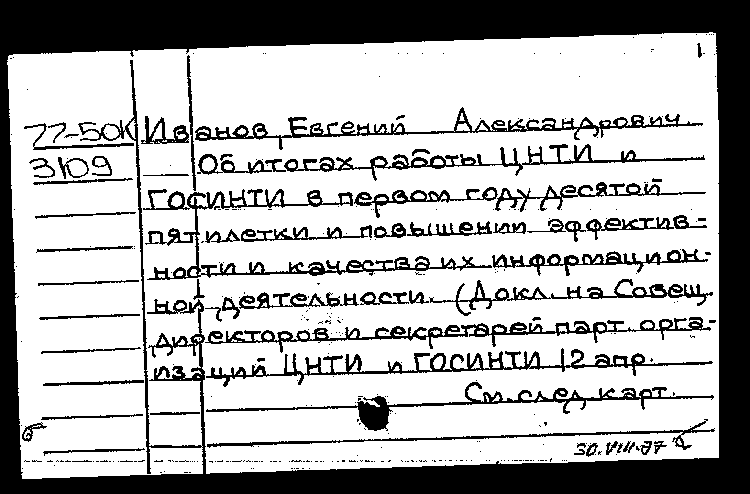 1
77-50К Иванов, Евгений Александрович.
3109 Об итогах работы ЦНТИ и
ГОСИНТИ в первом году десятой
пятилетки и повышении эффектив-
ности и качества их информацион-
ной деятельности. (Докл. на Совещ.
директоров и секретарей парт. орга-
изаций ЦНТИ и ГОСИНТИ 12 апр.
См. след. карт.
30.VIII.77